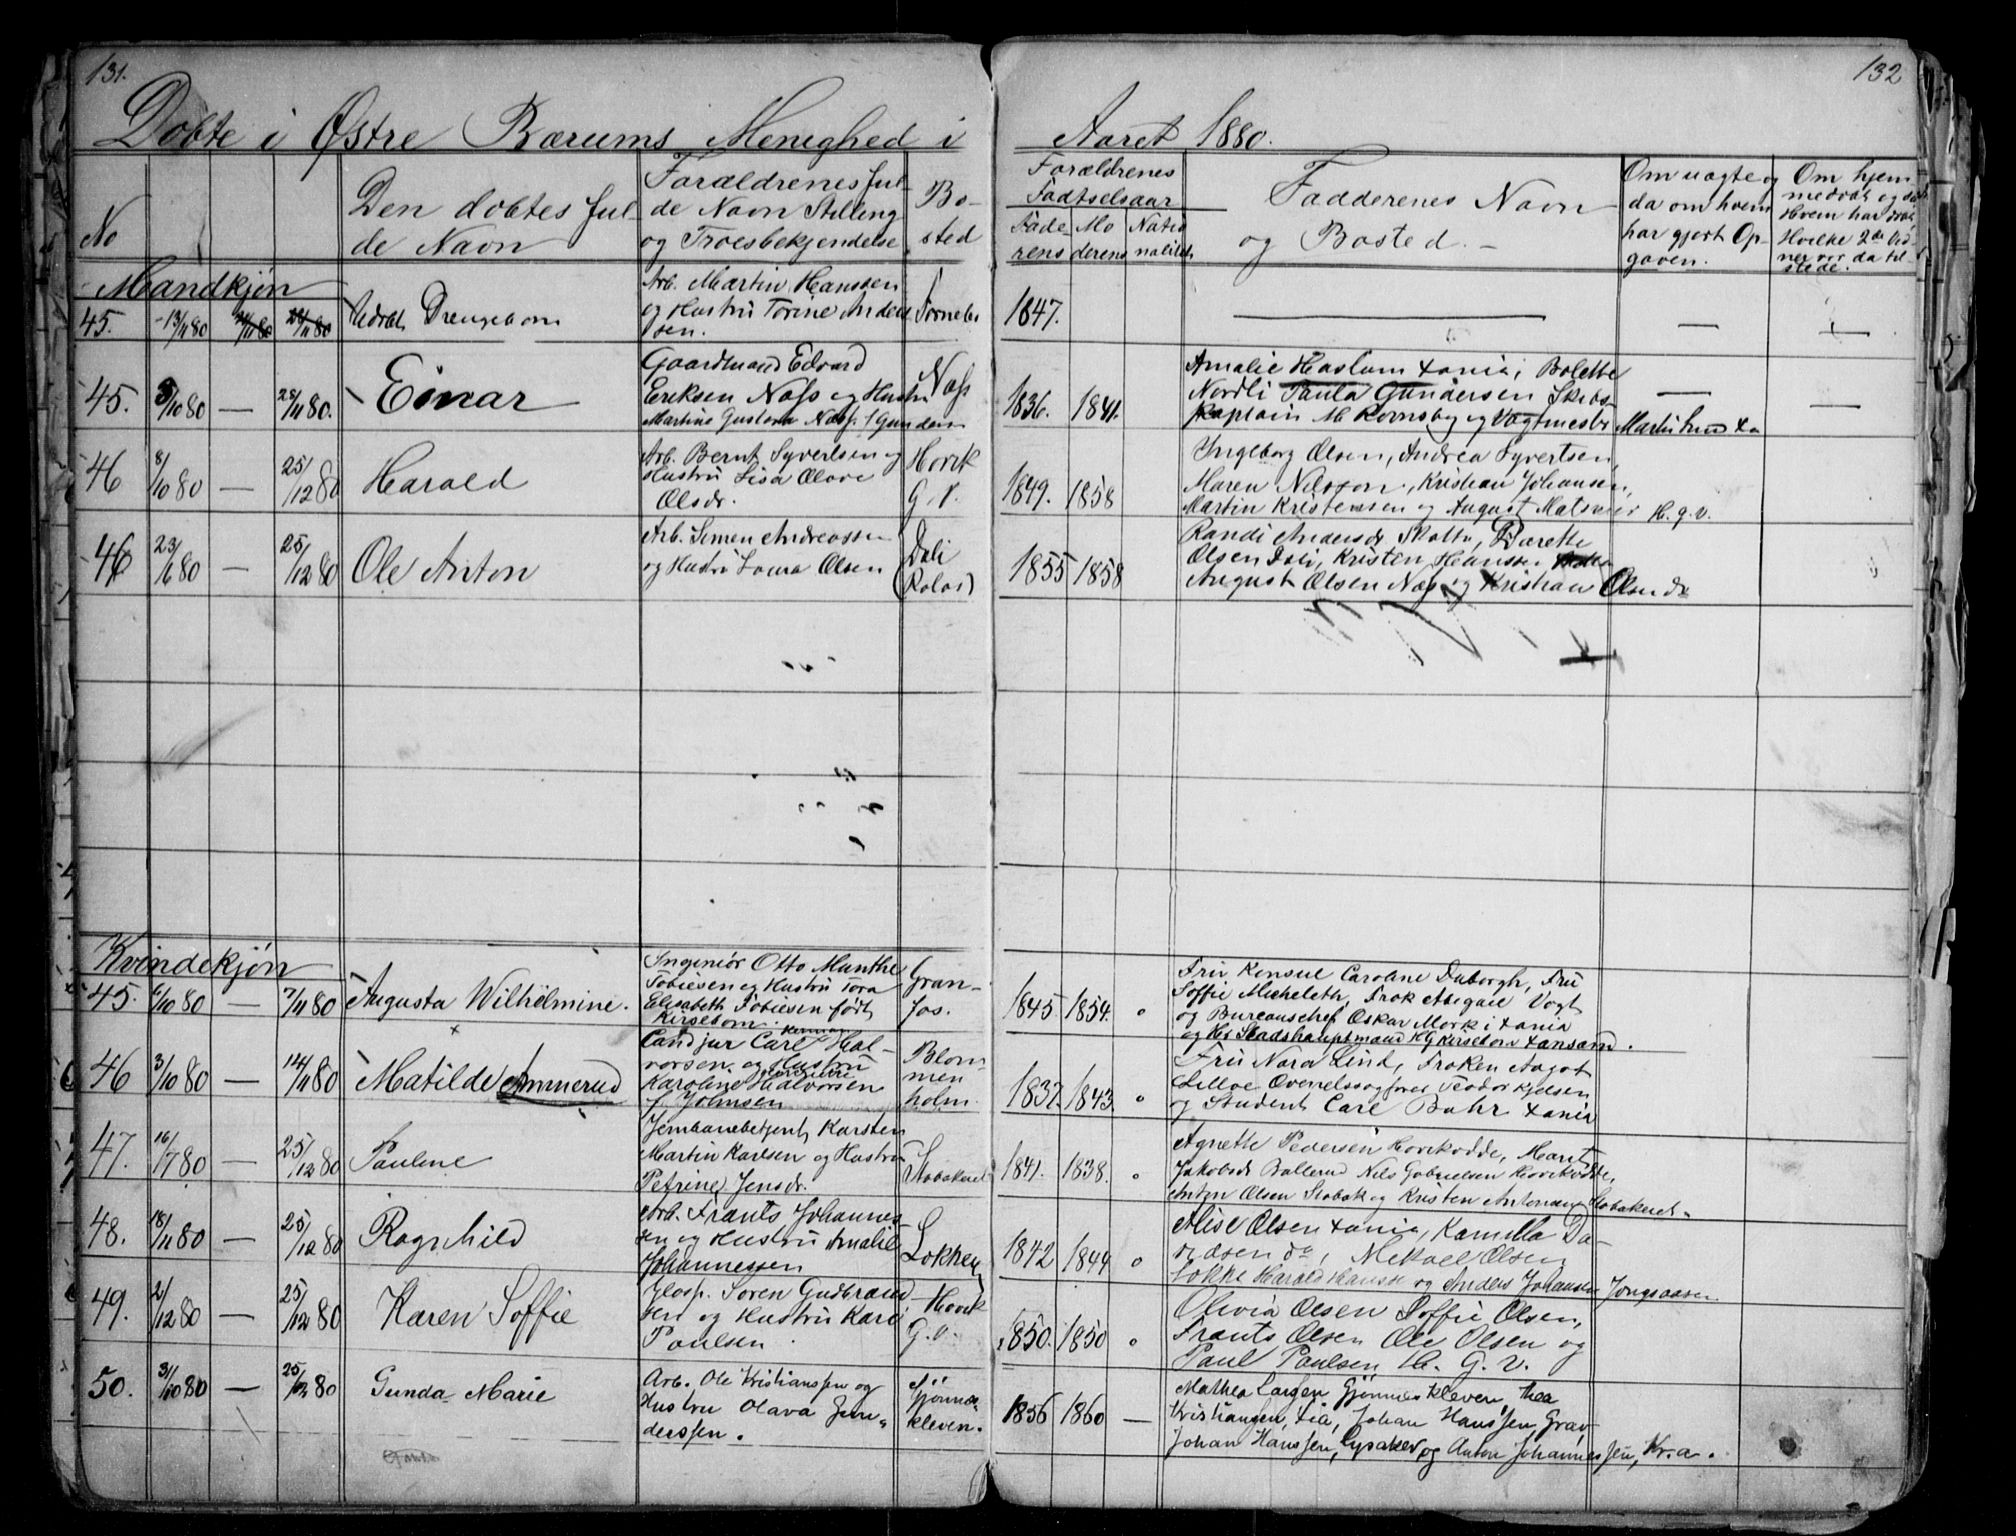 131.
132
Døbte i Østre Bærums Menighed i
Aaret 1880.
No
Den døbtes ful-
de Navn
Forældrenes ful-
de Navn Stilling
og Troesbekjendelse
Bo-
sted
Forældrenes
Fødselsaar
Fade-
rens
Mo
derens
Natio
nalitet
Fadderenes Navn
og Bosted.
Om uægte og
da om hvem
har gjort Op-
gaven.
Om hjem
medøbt og da
Hvem har døbt
Hvilke 2de Vid-
ner var da til
stede.
Mandkjøn
45. 13/11 80 Udøbt Drengebarn
Arb. Martin Hanssen
og Hustru Torine Ander
sen.
Fornebo
1847.
45. 3/10 80 — 28/11 80. Einar
Gaardmand Edvard
Eriksen Næss og Hustru
Martine Gustava Næss f. Gundersen
Næss
1836. 1841.
Amalie Haslum Xania, Bolette
Nordli Paula Gundersen Skibs-
kaptain M. Rornsby og Vagtmester Martin Xa
46 8/10 80 — 25/12 80 Harald
Arb. Bernt Syvertsen og
Hustru Lisa Olave
Olsdr.
Høvik
G. V.
1849. 1858
Ingeborg Olsen, Andrea Syvertsen,
Maren Nilsson, Kristian Johansen,
Martin Kristenssen og August H. g. v.
46 23/6 80 — 25/12 80 Ole Anton
Arb. Simen Andreassen
og Hustru Laura Olsen
Dæli
1855 1858
Randi Andersdr. Bærette
Olsen Dæli, Kristen Hanssen
August Olsen Næss og Kristian Olsen do
Kvindekjøn
45. 6/10 80 — 7/11 80 Augusta Wilhelmine.
Ingeniør Otto Munthe
Tobiesen og Hustru Tora
Elisabeth Tobiesen født
Kirsebom.
Gran-
fos.
1845. 1854. "
Fru Konsul Caroline Duborgh, Fru
Soffie Micheleth, Frøk Abigael Vogt
og Bureauschef Oskar Mork i Xania
og Hr Stadshauptmand HG Kirsebom Xansand.
46 3/10 80 — 14/11 80 Matilde Ammerud
Cand jur Carl Herman Hal-
vorsen og Hustru
Karoline Jørgine Halvorsen
f. Johnsen
Blom
men
holm.
1837. 1843. "
Fru Nara Lind, Frøken Aagot
Lilloe Overretssagfører Teodor Kjelsen
og Student Carl Buhr Xania
47. 16/7 80 — 25/12 80 Pauline
Jernbanebetjent Karsten
Martin Karlsen og Hustru
Petrine Jensdr.
Stabæk
1841. 1838. "
Agnette Pedersen Høvikodde, Marit
Jakobsdr Ballerud Nils Gabrielsen Høvikodde,
Anton Olsen Stabæk og Kristen Antonsen Stabæk
48. 18/11 80 — 25/12 80 Ragnhild
Arb. Frants Johannes-
sen og Hustru Amalie
Johannessen
Løkken
1842 1844 "
Alise Olsen Xania, Kamilla Da-
vidsen do, Mekael Olsen
Løkke Harald Hansen og Anders Johansen Jongsaasen.
49. 2/12 80 — 25/12 80 Karen Soffie
Glasp. Søren Gudbrand-
sen og Hustru Kari
Paulsen
Høvik
G. V.
1850. 1850 "
Olivia Olsen Soffie Olsen,
Frants Olsen Ole Olsen og
Paul Paulsen H. G. V.
50. 31/10 80 — 25/12 80 Gunda Marie
Arb. Ole Kristianssen og
Hustru Olava Gun-
derssen.
Gjønnes-
kleven.
1856 1860 —
Mathea Larsen, Gjønneskleven, Thea
Kristiansen, Lia, Johan Hanssen, Grav,
Johan Hanssen, Lysaker, og Anton Johannessen, Kr.a.